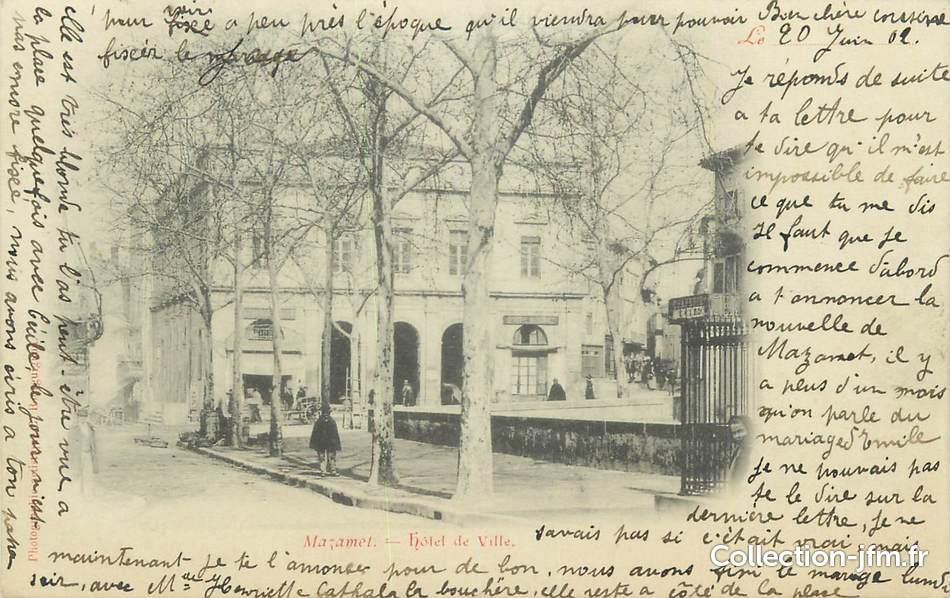 Bien chère cousine
Le 20 Juin 02.
Je réponds de suite
a ta lettre pour
te dire qu'il m'est
impossible de faire
ce que tu me dis
Il faut que je
commence d'abord
a t'annoncer la
nouvelle de
Mazamet, il y
a plus d'un mois
qu'on parle du
mariage d'Emile
je ne pouvais pas
te le dire sur la
dernière lettre, je ne
savais pas si c'était vrai mais
maintenant je te l'annonce pour de bon, nous avons fini le mariage lundi
soir, avec Mlle Henriette Cathala la bouchère, elle reste a côté de la place
elle est très blonde tu l'as peut-être vue a
la place quelquefois avec Cécile, le jour n'est
pas encore fixé, nous avons écris a ton papa
pour voir a peu près l'époque qu'il viendra pour pouvoir
fixer le mariage
Mazamet. — Hôtel de Ville.
Collection-jfm.fr